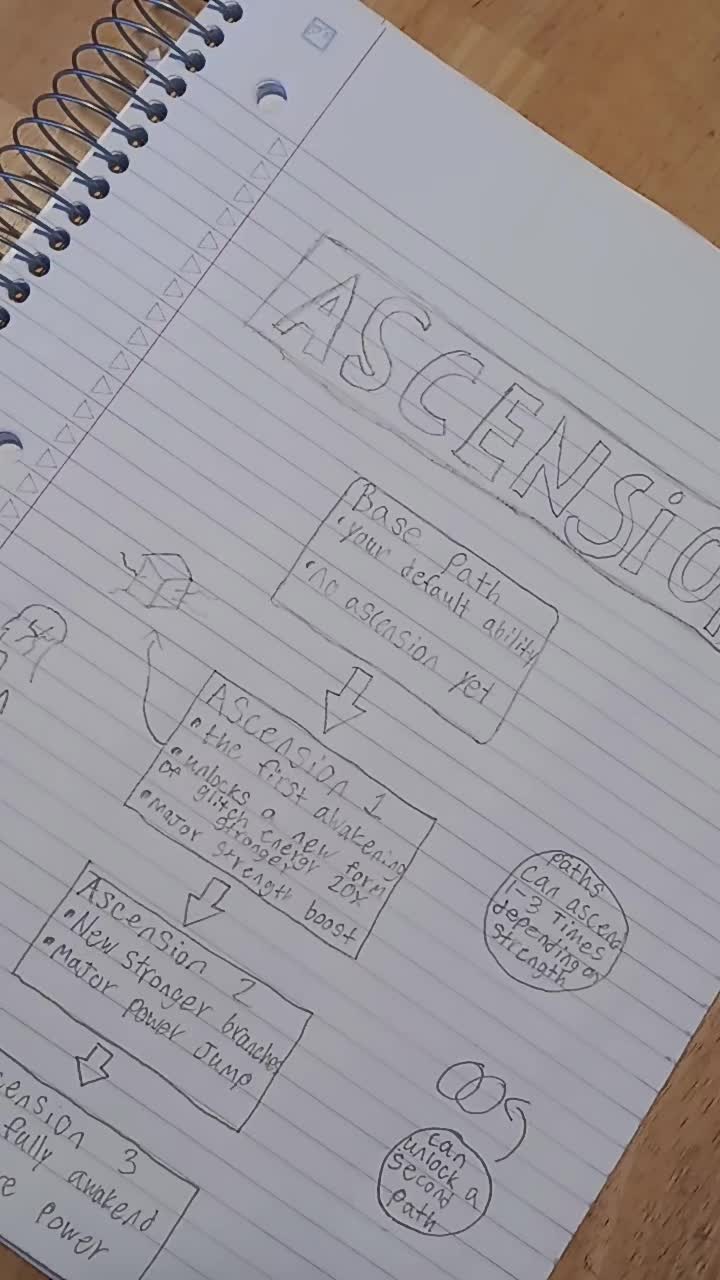 ASCENSiO
Base path
• your default ability
• no ascension yet
Ascension 1
• the first awakening
• unlocks a new form
of glitch energy 20x
stronger
• major strength boost
paths
can ascend
1-3 times
depending on
strength
Ascension 2
• New stronger branches
• Major power jump
can
unlock a
second
path
cension 3
fully awakend
re power